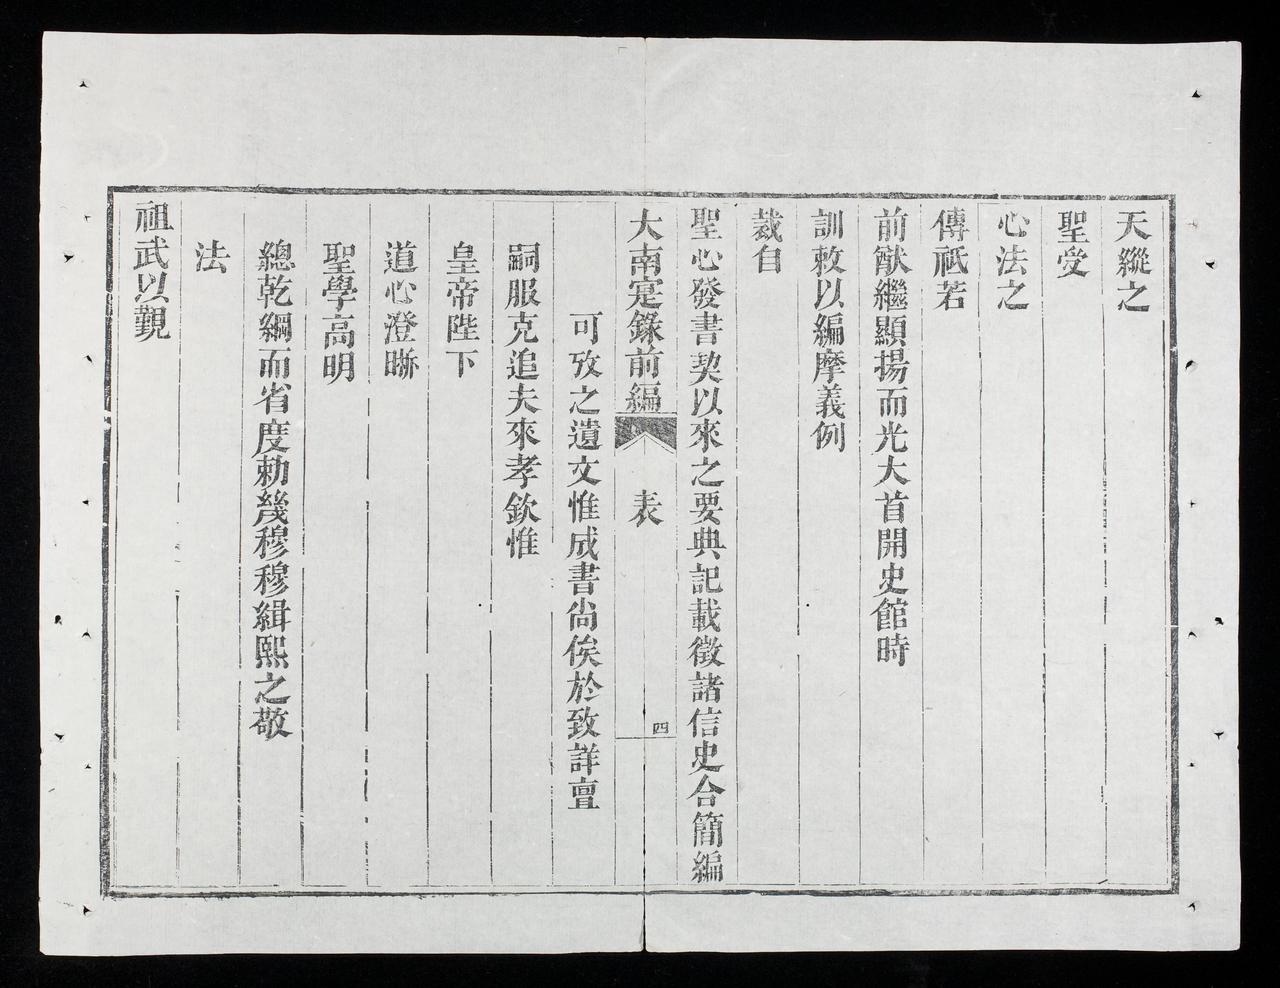 天縱之
聖受
心法之
傳祗若
前猷繼顯揚而光大首開史館時
訓敕以編摩義例
裁自
聖心發書契以來之要典記載徵諸信史合簡編
大南寔錄前編 表 四
可攷之遺文惟成書尚俟於致詳亶
嗣服克追夫來孝欽惟
皇帝陛下
道心澄晰
聖學高明
總乾綱而省度勅幾穆穆緝熙之敬
法
祖武以觀